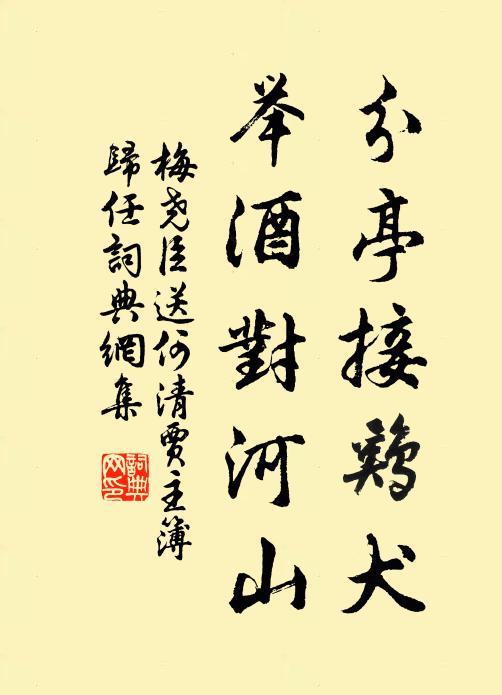 分亭接鷄犬
举酒對河山
梅尧臣送何清賈主簿
歸任詞典網集
詞典
网印